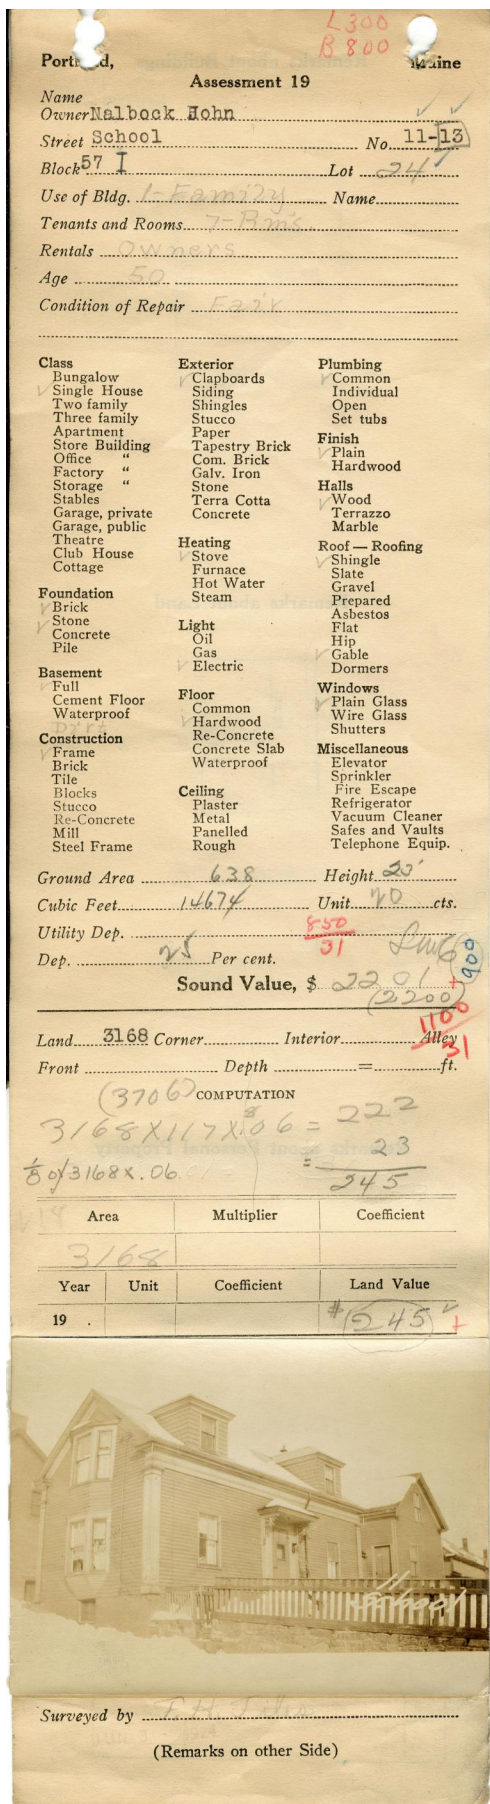 L300
B800
Portland, Maine
Assessment 19
Name
Owner Nalbock John
Street School No. 11-13
Block 57 I Lot 24
Use of Bldg. 1-Family Name
Tenants and Rooms 7-Rms.
Rentals Owners
Age 50
Condition of Repair Fair
Class
Bungalow
Single House
Two family
Three family
Apartment
Store Building
Office "
Factory "
Storage "
Stables
Garage, private
Garage, public
Theatre
Club House
Cottage
Foundation
Brick
Stone
Concrete
Pile
Basement
Full
Cement Floor
Waterproof
Construction
Frame
Brick
Tile
Blocks
Stucco
Re-Concrete
Mill
Steel Frame
Exterior
Clapboards
Siding
Shingles
Stucco
Paper
Tapestry Brick
Com. Brick
Galv. Iron
Stone
Terra Cotta
Concrete
Heating
Stove
Furnace
Hot Water
Steam
Light
Oil
Gas
Electric
Floor
Common
Hardwood
Re-Concrete
Concrete Slab
Waterproof
Ceiling
Plaster
Metal
Panelled
Rough
Plumbing
Common
Individual
Open
Set tubs
Finish
Plain
Hardwood
Halls
Wood
Terrazzo
Marble
Roof — Roofing
Shingle
Slate
Gravel
Prepared
Asbestos
Flat
Hip
Gable
Dormers
Windows
Plain Glass
Wire Glass
Shutters
Miscellaneous
Elevator
Sprinkler
Fire Escape
Refrigerator
Vacuum Cleaner
Safes and Vaults
Telephone Equip.
Ground Area 638 Height 23'
Cubic Feet 14674 Unit 20 cts.
Utility Dep. 850
31
Dep. 25 Per cent. 900
Sound Value, $ 2201 +
(2200)
1100
31
Land 3168 Corner Interior Alley
Front Depth = ft.
(3706) COMPUTATION
3168 X 117 X .06 = 222
1/8 of 3168 X .06 = 23
245
Area Multiplier Coefficient
3168
Year Unit Coefficient Land Value
19 . $ 245 +
11
School
Surveyed by
(Remarks on other Side)